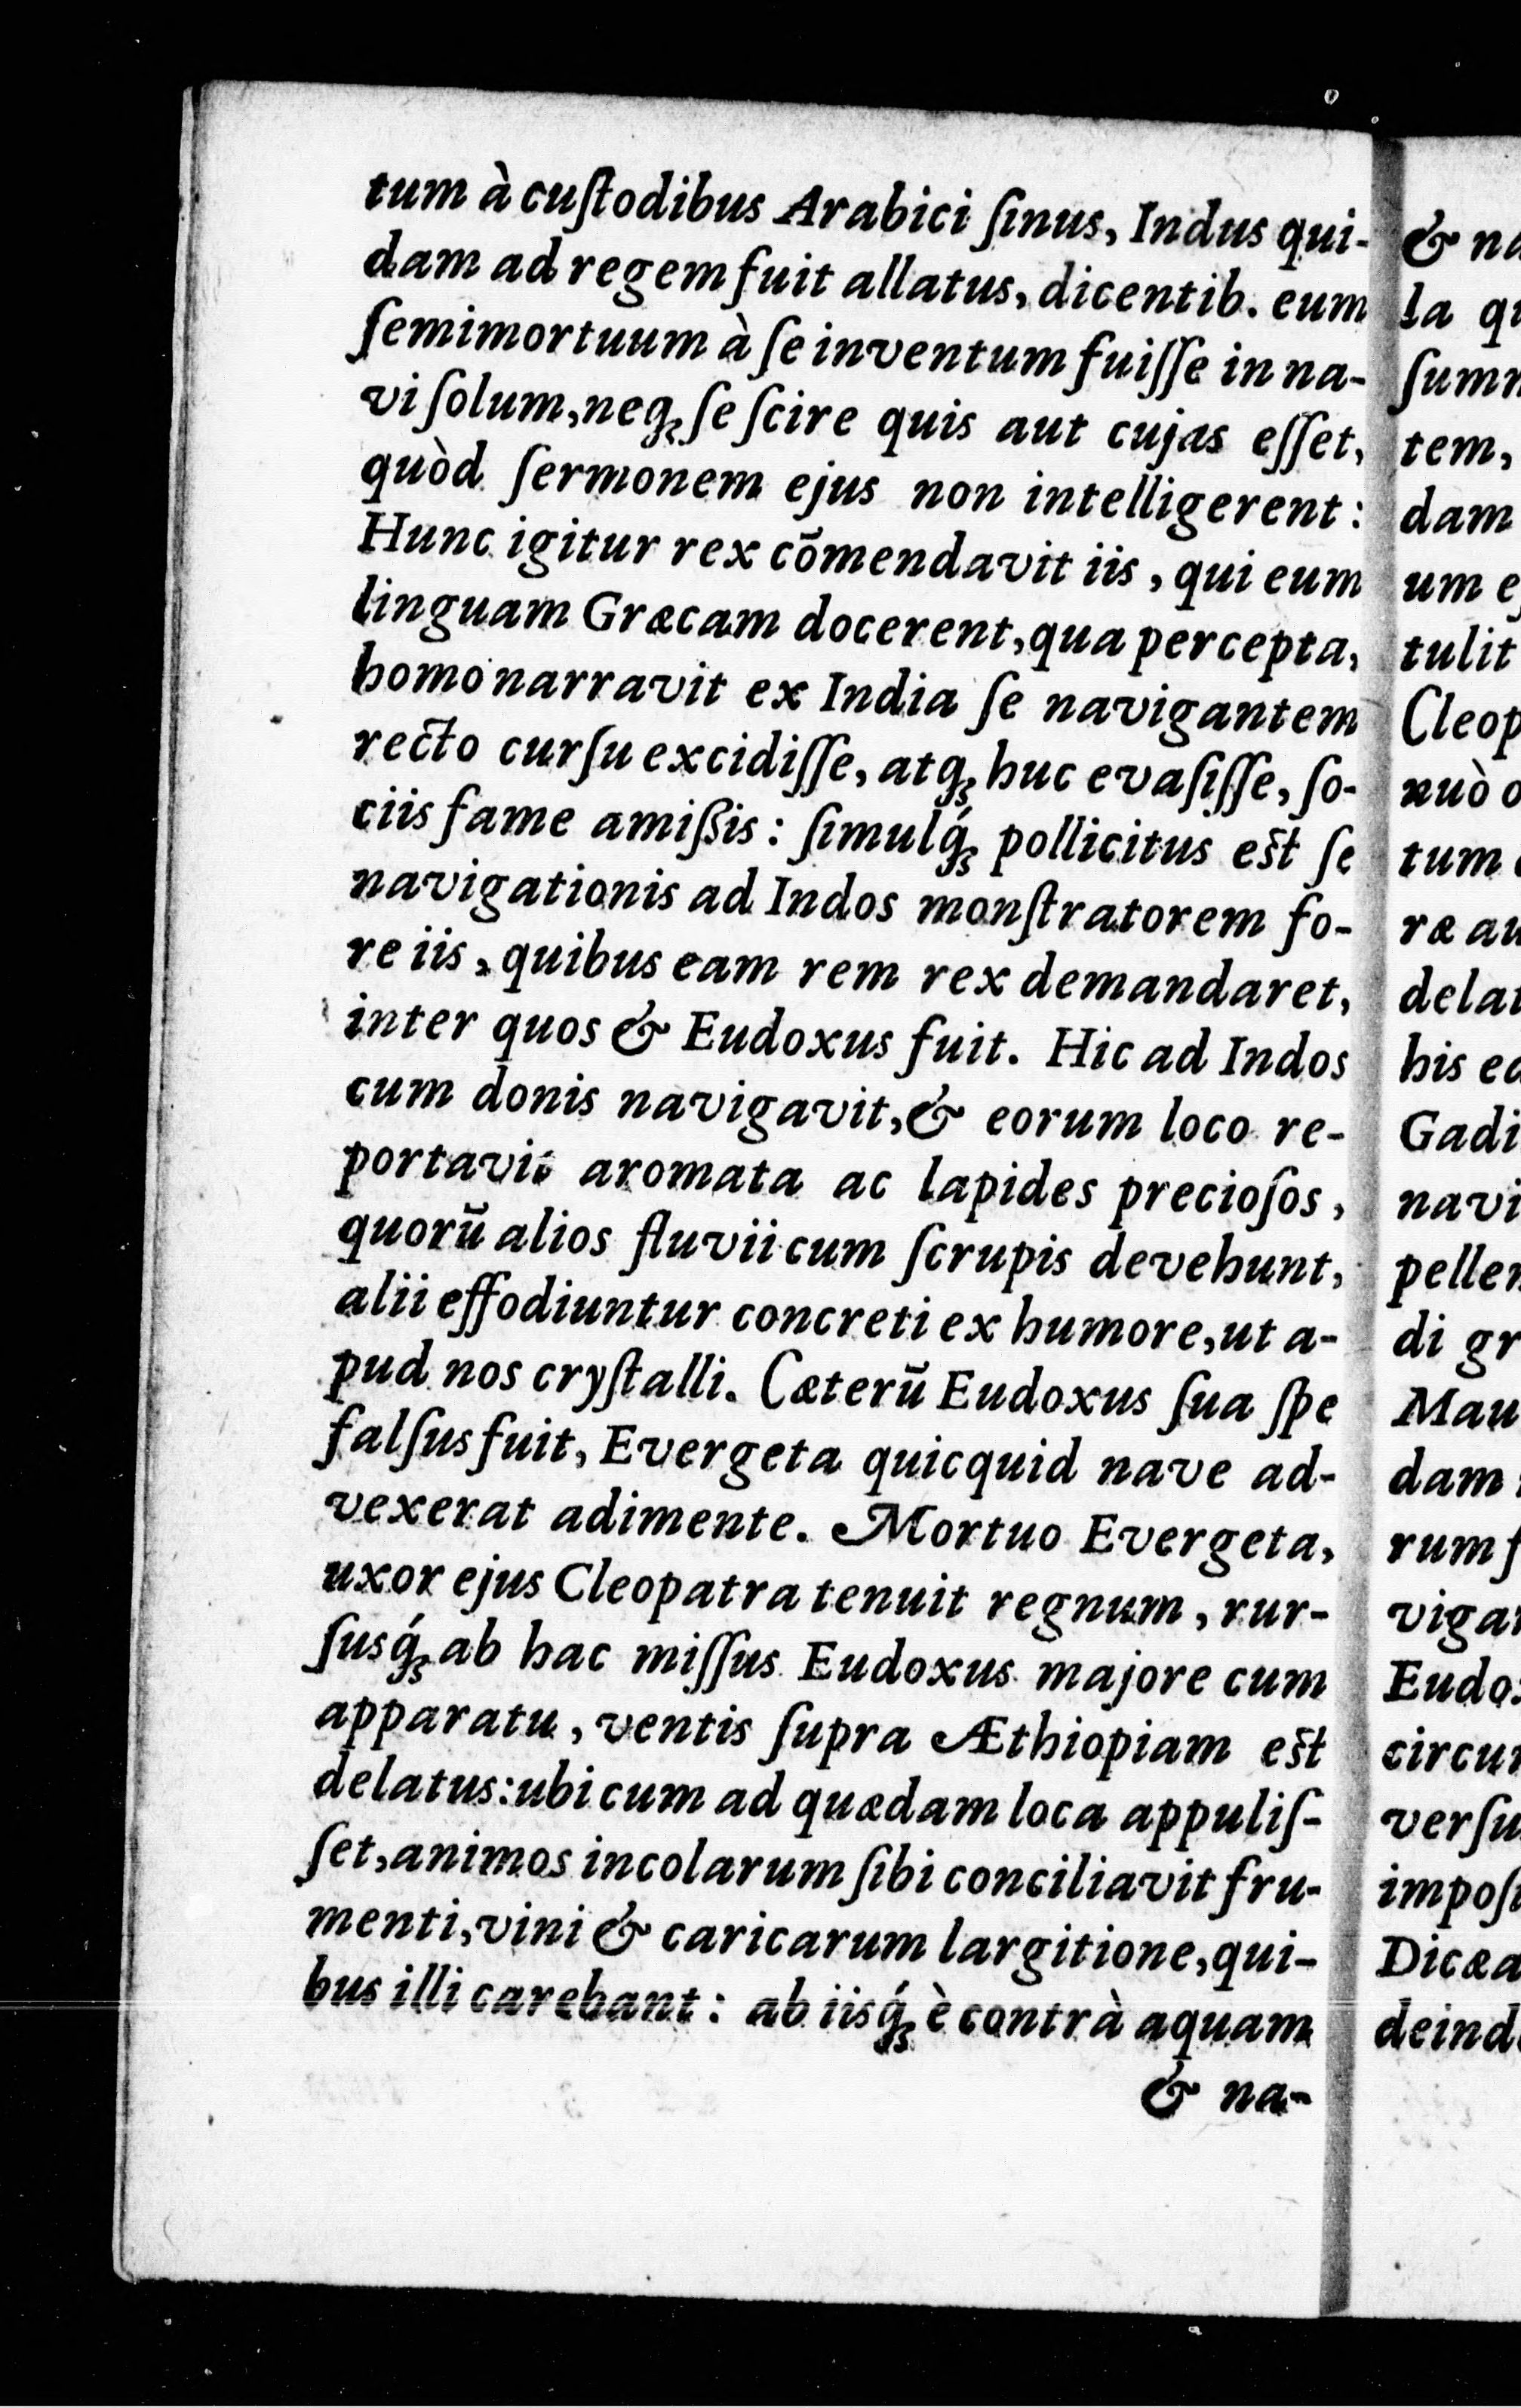 tum à cuſtodibus Arabici ſinus, Indus qui-
dam ad regem fuit allatus, dicentib. eum
ſemimortuum à ſe inventum fuiſſe in na-
vi ſolum, neq; ſe ſcire quis aut cujas eſſet,
quòd ſermonem ejus non intelligerent:
Hunc igitur rex cõmendavit iis, qui eum
linguam Græcam docerent, qua percepta,
homo narravit ex India ſe navigantem
recto curſu excidiſſe, atq; huc evaſiſſe, ſo-
ciis fame amißis: ſimulq́; pollicitus eſt ſe
navigationis ad Indos monſtratorem fo-
re iis, quibus eam rem rex demandaret,
inter quos & Eudoxus fuit. Hic ad Indos
cum donis navigavit, & eorum loco re-
portavit aromata ac lapides precioſos,
quorũ alios fluvii cum ſcrupis devehunt,
alii effodiuntur concreti ex humore, ut a-
pud nos cryſtalli. Cæterũ Eudoxus ſua ſpe
falſus fuit, Evergeta quicquid nave ad-
vexerat adimente. Mortuo Evergeta,
uxor ejus Cleopatra tenuit regnum, rur-
ſusq́; ab hac miſſus Eudoxus majore cum
apparatu, ventis ſupra Æthiopiam eſt
delatus: ubi cum ad quædam loca appuliſ-
ſet, animos incolarum ſibi conciliavit fru-
menti, vini & caricarum largitione, qui-
bus illi carebant: ab iisq́; è contrà aquam
& na-
& na
la
tem,
dam
um
tulit
nuò
tum
ræ
his
navi
di
dam